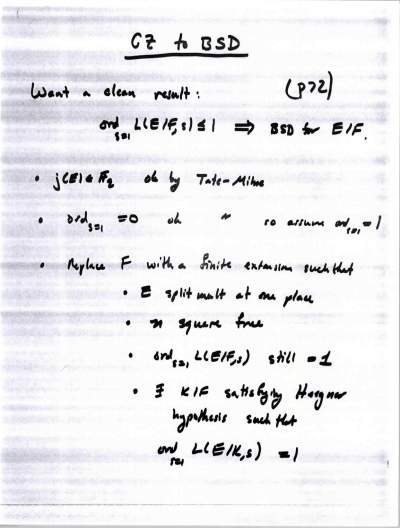 GZ to BSD
Want a clean result: (p>2)
ord_{s=1} L(E/F,s) ≤ 1 ⟹ BSD for E/F.
• j(E) ∈ F̄_2 ok by Tate-Milne
• ord_{s=1} = 0 ok " so assume ord_{s=1} = 1
• Replace F with a finite extension such that
• E split mult at one place
• n square free
• ord_{s=1} L(E/F,s) still = 1
• ∃ K/F satisfying Heegner
hypothesis such that
ord_{s=1} L(E/K,s) = 1